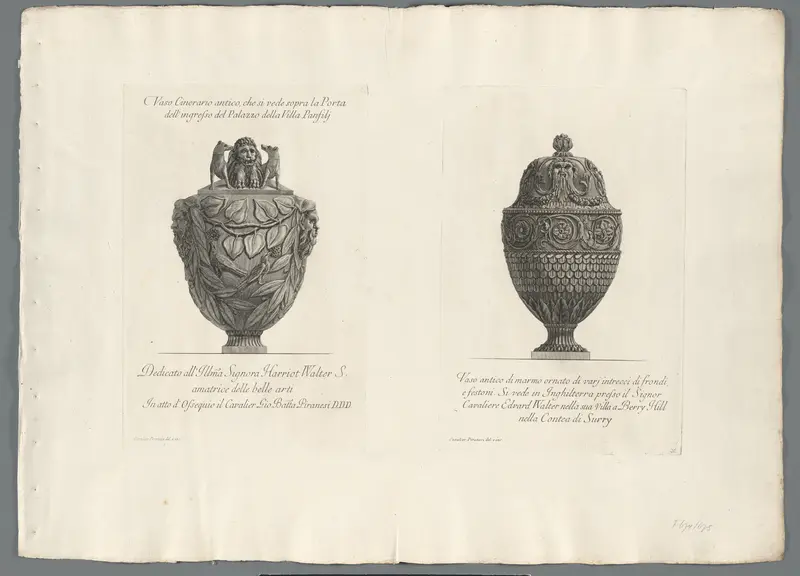 Vaso Cinerario antico, che si vede sopra la Porta
dell'ingresso del Palazzo della Villa Panfilj
Dedicato all'Illma Signora Harriot Walter S.
amatrice delle belle arti
In atto d'Ossequio il Cavalier Gio Batta Piranesi D.D.D.
Cavalier Piranesi del. e inc.
Vaso antico di marmo ornato di varj intrecci di frondi,
e festoni. Si vede in Inghilterra presso il Signor
Cavaliere Edvard Walter nella sua Villa a Berry Hill
nella Contea di Surry
Cavalier Piranesi del. e inc.